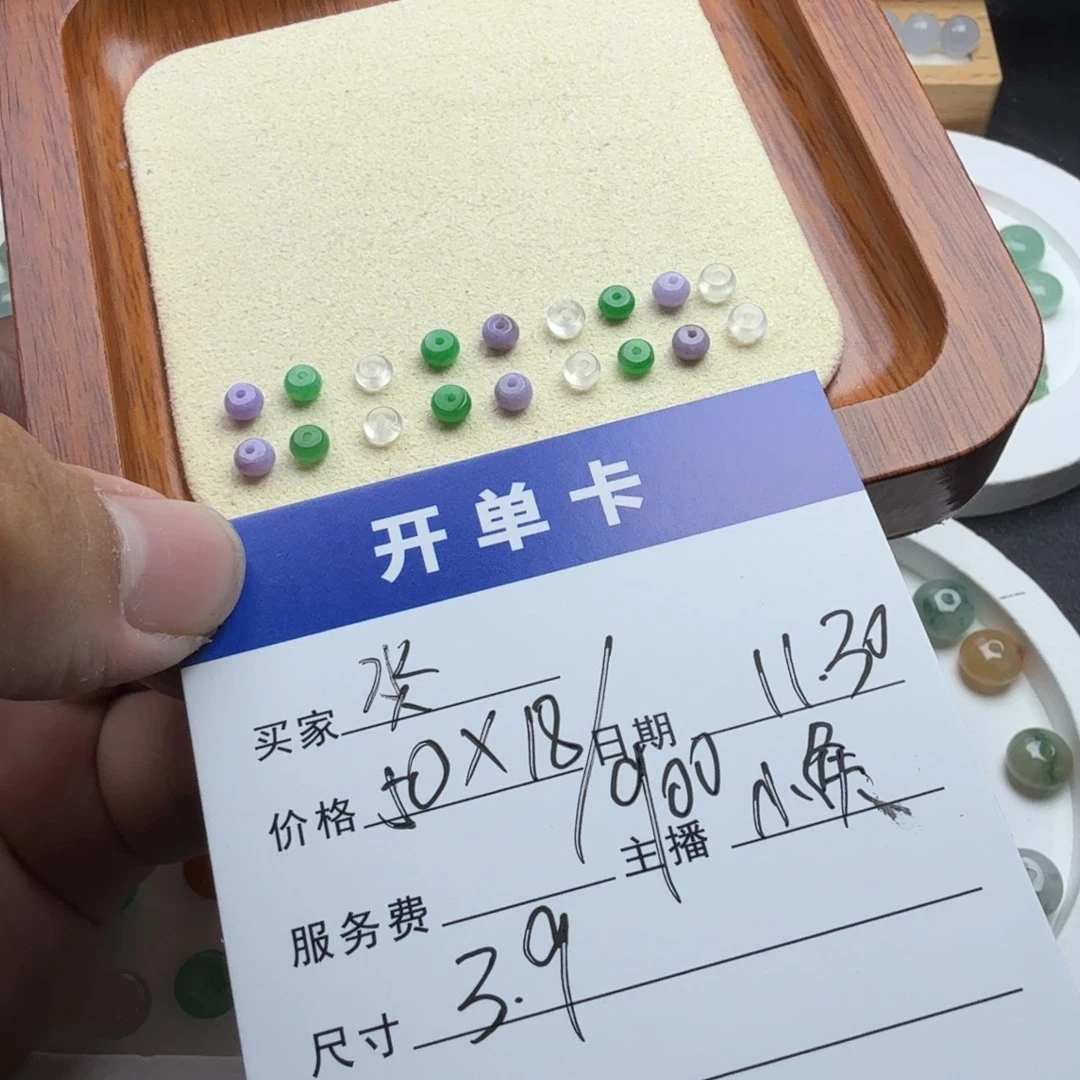 开单卡
买家 日期 11.30
价格 50×18/900
主播 小魚
服务费
尺寸 3.9